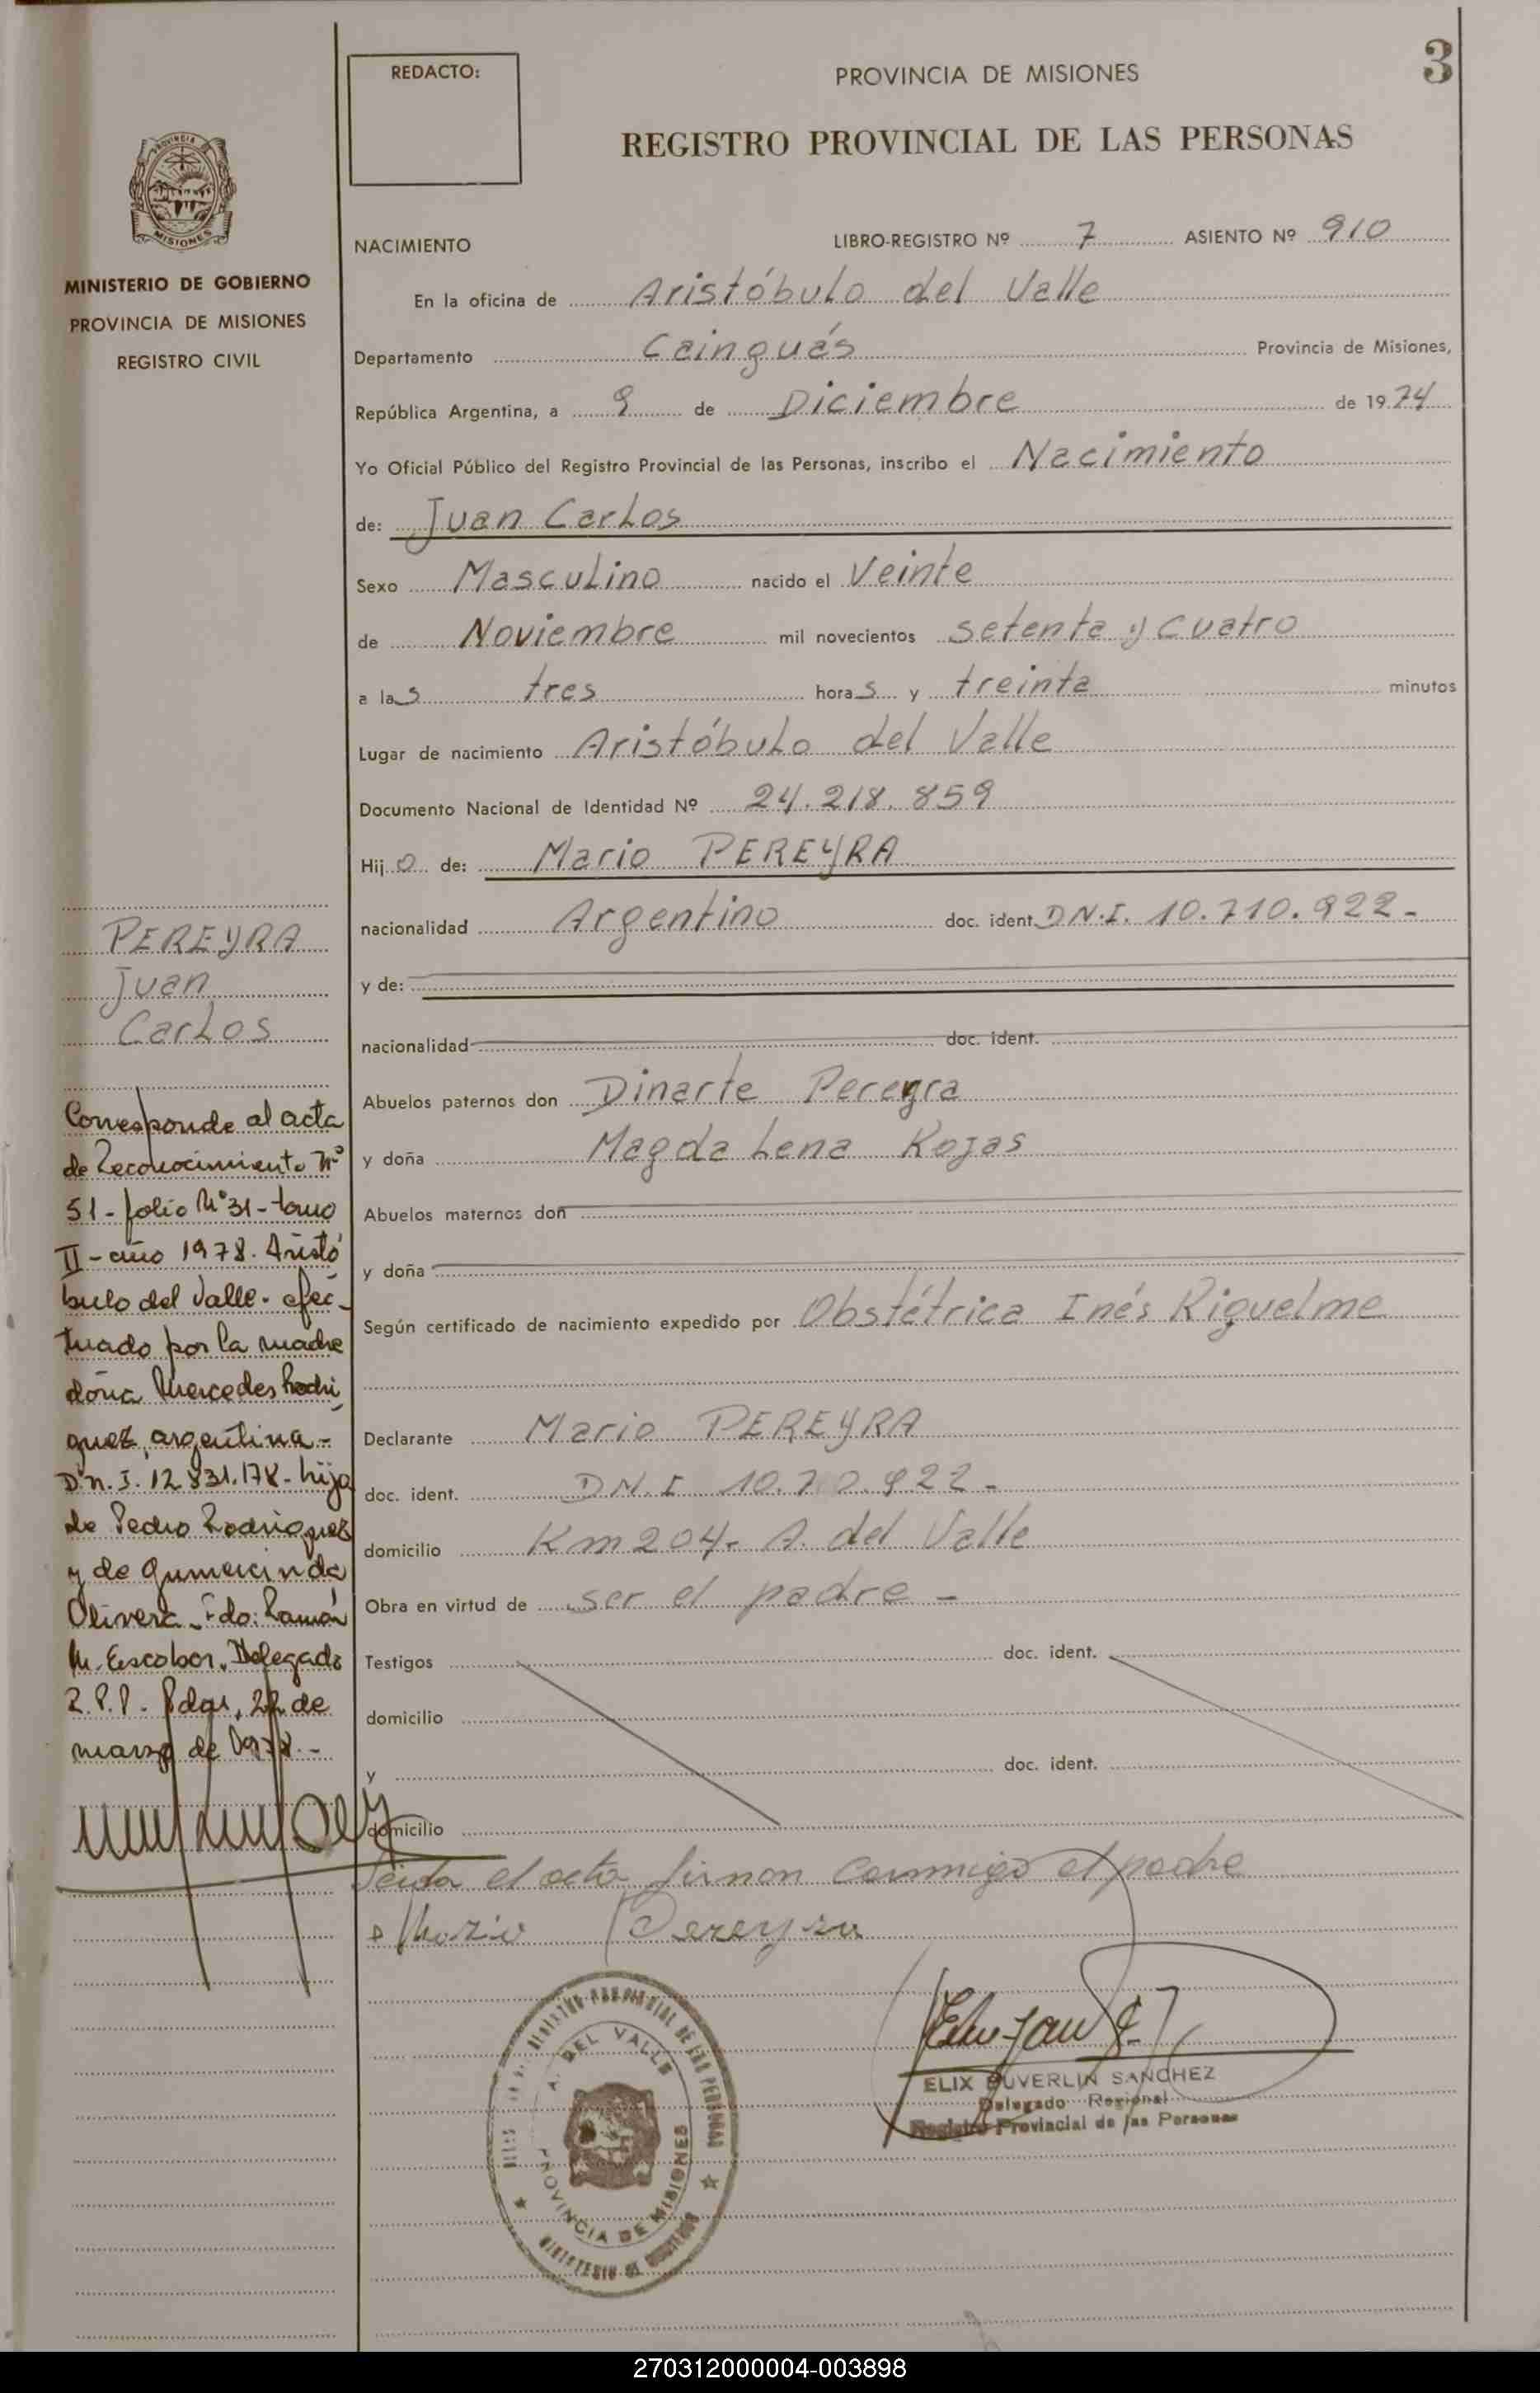 REDACTO:
PROVINCIA DE MISIONES
3
REGISTRO PROVINCIAL DE LAS PERSONAS
PROVINCIA DE
MISIONES
MINISTERIO DE GOBIERNO
PROVINCIA DE MISIONES
REGISTRO CIVIL
NACIMIENTO
LIBRO-REGISTRO Nº 7 ASIENTO Nº 910
En la oficina de Aristóbulo del Valle
Departamento Cainguás Provincia de Misiones,
República Argentina, a 9 de Diciembre de 1974
Yo Oficial Público del Registro Provincial de las Personas, inscribo el Nacimiento
de: Juan Carlos
Sexo Masculino nacido el Veinte
de Noviembre mil novecientos setenta y cuatro
a las tres horas y treinta minutos
Lugar de nacimiento Aristóbulo del Valle
Documento Nacional de Identidad Nº 24.218.859
Hijo de: Mario PEREYRA
nacionalidad Argentino doc. ident. D.N.I. 10.710.922-
y de:
nacionalidad doc. ident.
Abuelos paternos don Dinarte Pereyra
y doña Magdalena Rojas
Abuelos maternos don
y doña
Según certificado de nacimiento expedido por Obstétrica Inés Riquelme
Declarante Mario PEREYRA
doc. ident. D.N.I 10.710.922-
domicilio Km 204- A. del Valle
Obra en virtud de ser el padre -
Testigos doc. ident.
domicilio
y doc. ident.
domicilio
Leida el acta firman conmigo el padre
Mario Pereyra
PEREYRA
Juan
Carlos
Corresponde al acta
de Reconocimiento Nº
51- folio Nº 31- tomo
II- año 1978. Aristó
bulo del Valle- efec-
tuado por la madre
doña Mercedes Rodrí
guez, argentina-
D.N.I. 12.831.178- hija
de Pedro Rodriguez
y de Gumercinda
Olivera- Fdo: Ramón
M. Escobar, Delegado
R.P.P. Pdas, 22 de
marzo de 1978.-
REGISTRO PROVINCIAL DE LAS PERSONAS
A. DEL VALLE
PROVINCIA DE MISIONES
MINISTERIO DE GOBIERNO
ELIX DUVERLIN SANCHEZ
Delegado Regional
Registro Provincial de las Personas
270312000004-003898